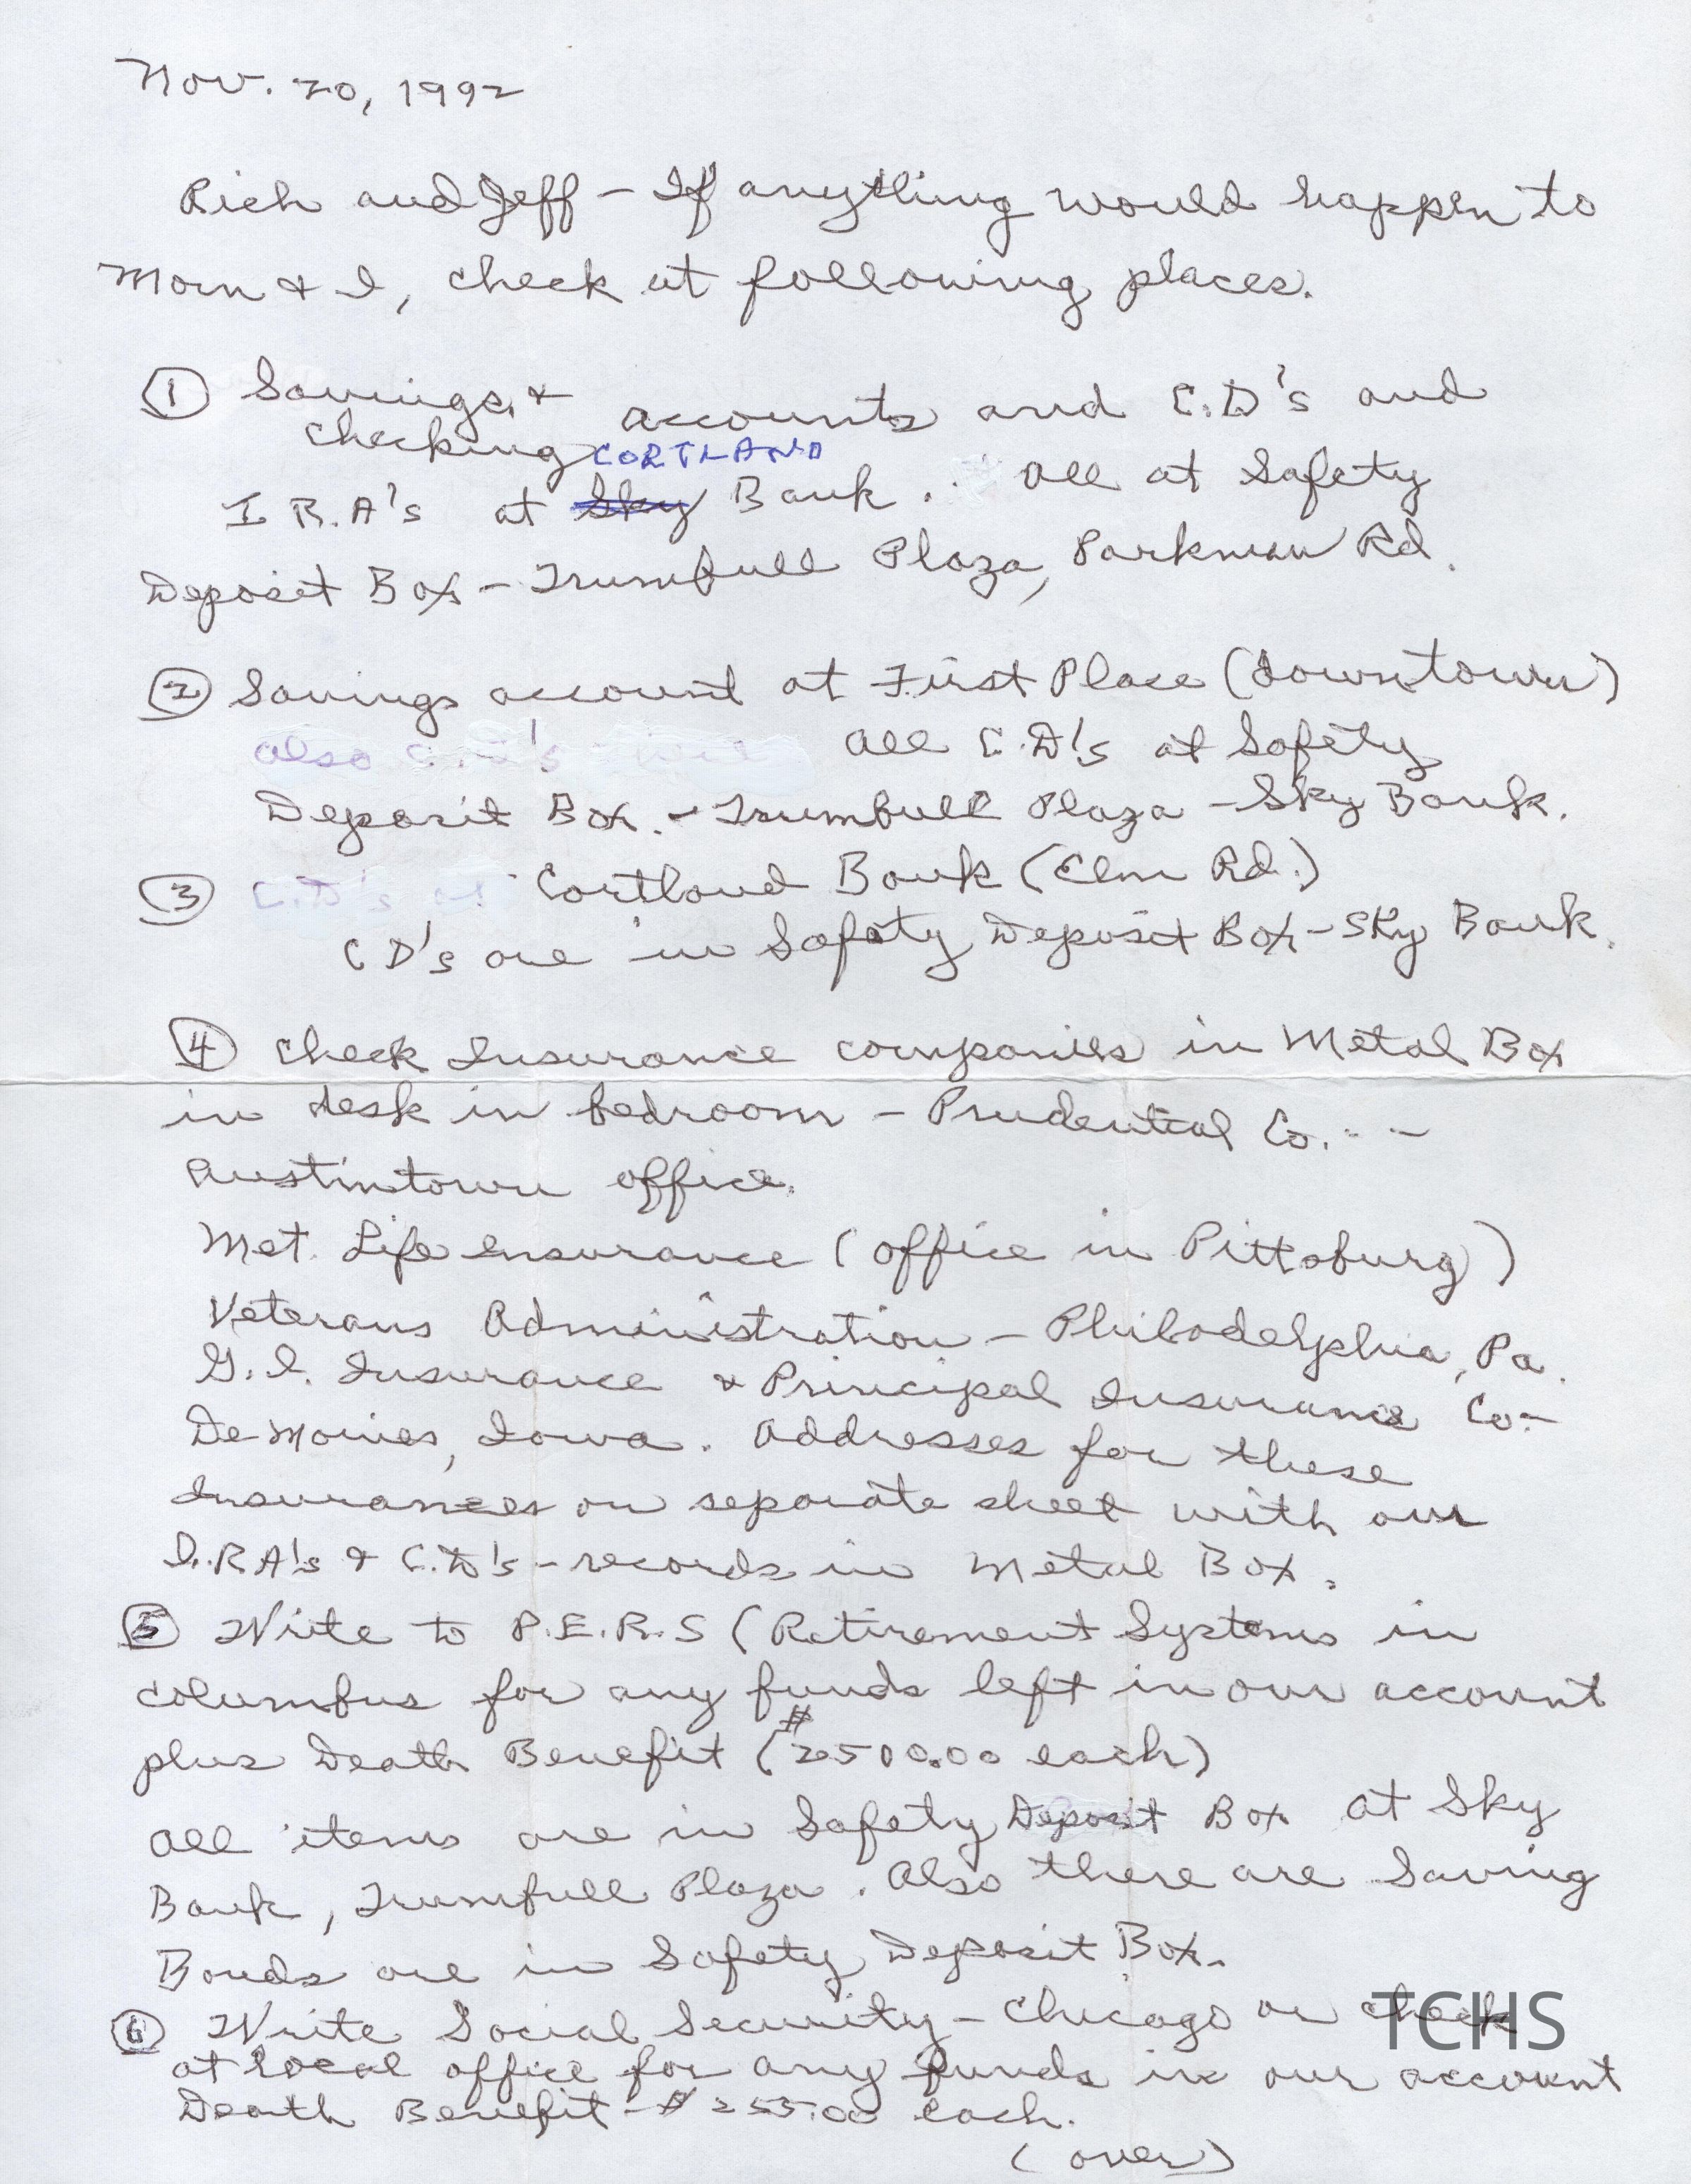 Nov. 20, 1992
Rich and Jeff - If anything would happen to
Mom & I, check at following places.
① Savings & accounts and C.D's and
checking CORTLAND
I R.A's at Sky Bank. All at Safety
Deposit Box - Trumbull Plaza, Parkman Rd.
② Savings account at First Place (downtown)
also C.D's All C.D's at Safety
Deposit Box. - Trumbull Plaza - Sky Bank.
③ C.D's at Cortland Bank (Elm Rd.)
C D's are in Safety Deposit Box - Sky Bank.
④ Check Insurance companies in Metal Box
in desk in bedroom - Prudential Co. - -
Austintown office.
Met. Life Insurance (office in Pittsburg)
Veterans Administration - Philadelphia, Pa.
G.I. Insurance & Principal Insurance Co. -
De Moines, Iowa. Addresses for these
Insurances on separate sheet with our
I.R A's & C.D's - records in Metal Box.
⑤ Write to P.E.R.S (Retirement Systems in
Columbus for any funds left in our account
plus Death Benefit ($2500.00 each)
All items are in Safety Deposit Box at Sky
Bank, Trumbull Plaza. Also there are Saving
Bonds are in Safety Deposit Box.
⑥ Write Social Security - Chicago or check
at local office for any funds in our account
Death Benefit - $255.00 each.
(over)
TCHS